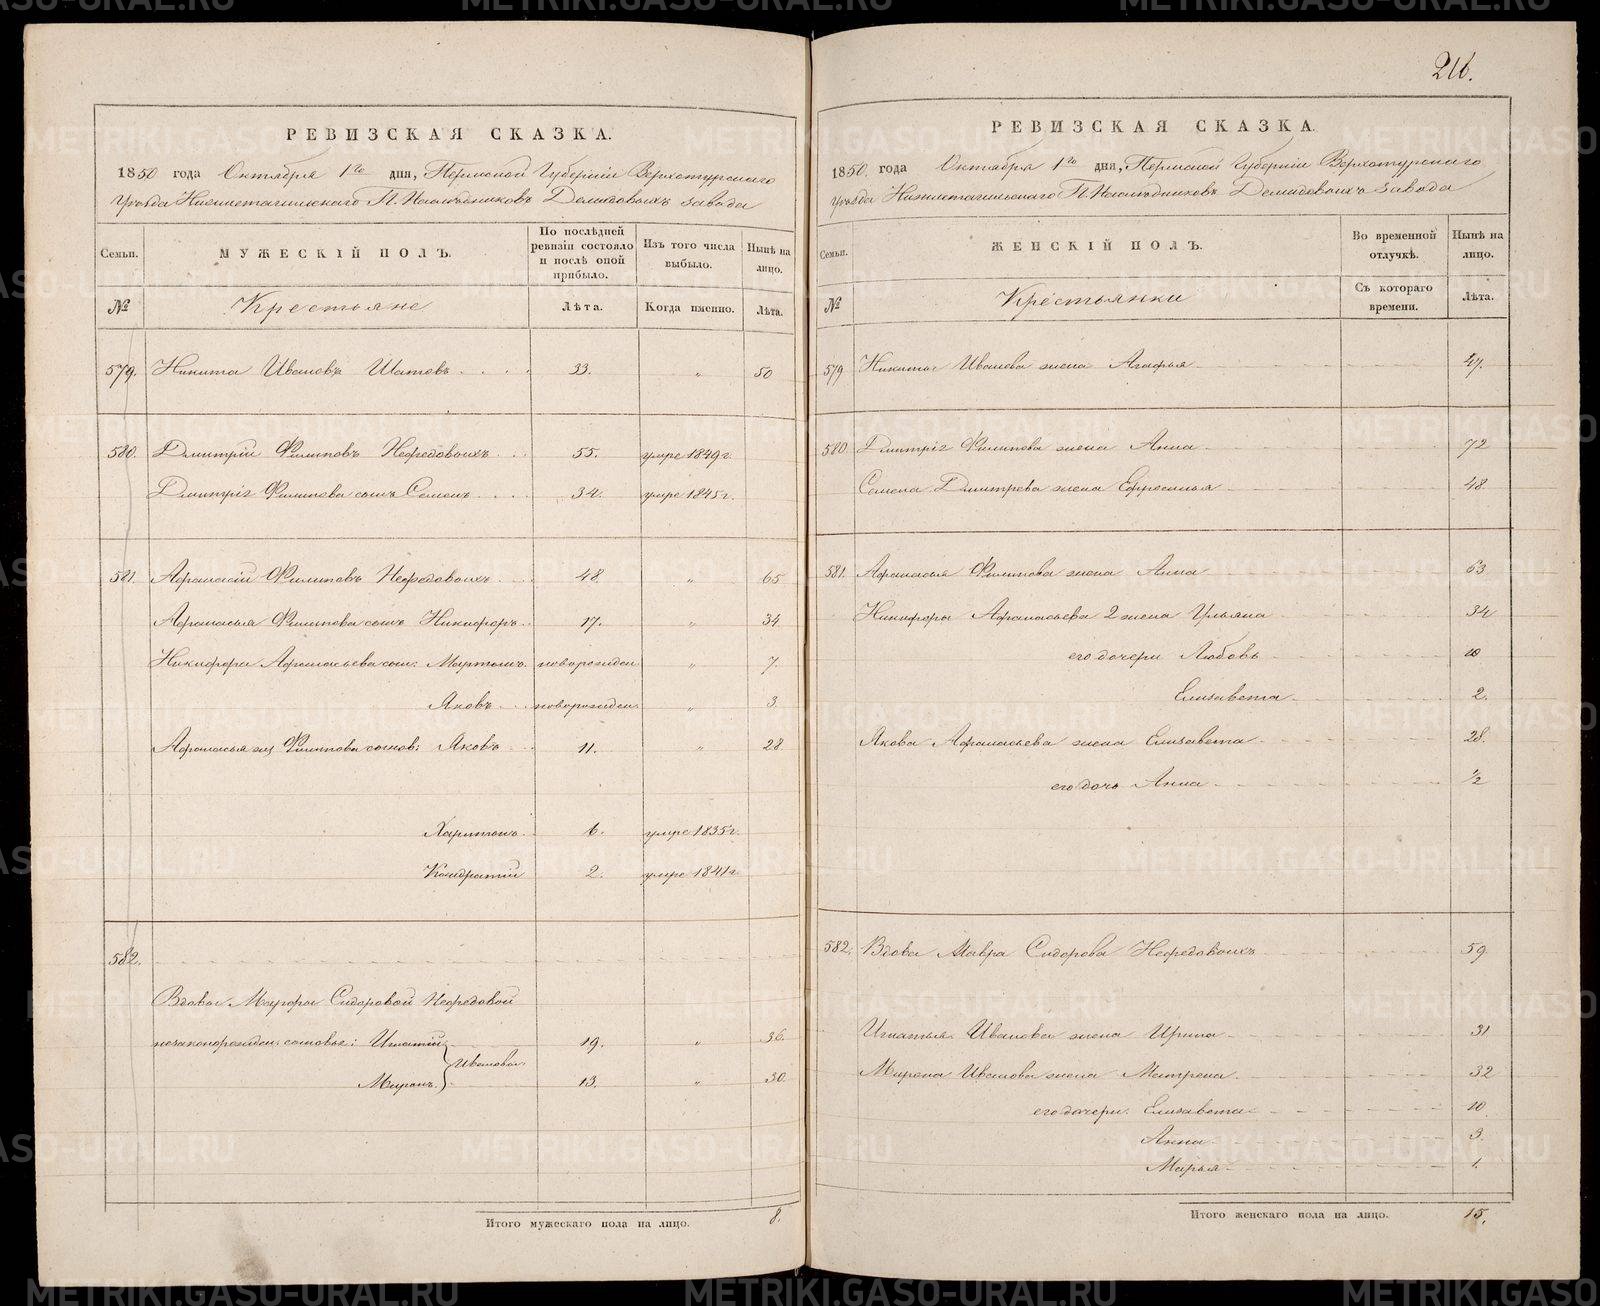 216.
РЕВИЗСКАЯ СКАЗКА.
1850 года Октября 1го дня, Пермской Губернии Верхотурскаго
Уѣзда Нижнетагильскаго Г.Г. Наслѣдниковъ Демидовыхъ завода
Семьи.
МУЖЕСКІЙ ПОЛЪ.
По послѣдней ревизіи состояло и послѣ оной прибыло.
Изъ того числа выбыло.
Нынѣ на лицо.
№
Крестьяне
Лѣта.
Когда именно.
Лѣта.
579. Никита Ивановъ Шатовъ 33. „ 50
580. Дмитрій Филиповъ Нефедовыхъ 55. умре 1849 г.
Дмитрія Филипова сынъ Семенъ 34. умре 1845 г.
581. Афанасій Филиповъ Нефедовыхъ 48. „ 65
Афанасья Филипова сынъ Никифоръ 17. „ 34
Никифора Афанасьева сын: Мартынъ новорожден „ 7.
Яковъ новорожден. „ 3.
Афанасья Филипова сынов: Яковъ 11. „ 28
Харитонъ 6. умре 1835 г.
Кондратій 2. умре 1841 г.
582.
Вдовы Мавры Сидоровой Нефедовой
незаконорожден. сыновья: Игнатій 19. „ 36.
Ивановы
Миронъ 13. „ 30
Итого мужескаго пола на лицо. 8.
РЕВИЗСКАЯ СКАЗКА.
1850. года Октября 1го дня, Пермской Губерніи Верхотурскаго
Уѣзда Нижнетагильскаго Г.Г. Наслѣдниковъ Демидовыхъ завода
Семьи.
ЖЕНСКІЙ ПОЛЪ.
Во временной отлучкѣ.
Нынѣ на лицо.
№
Крестьянки
Съ котораго времени.
Лѣта.
579 Никиты Иванова жена Агафья 47.
580 Дмитрія Филипова жена Анна 72
Семена Дмитрева жена Ефросинья 48
581. Афанасья Филипова жена Анна 63
Никифора Афанасьева 2 жена Ульяна 34
его дочери Любовь 10
Елизавета 2.
Якова Афанасьева жена Елизавета 28.
его дочь Анна 1/2
582. Вдова Мавра Сидорова Нефедовыхъ 59
Игнатья Иванова жена Ирина 31
Мирона Иванова жена Матрена 32
его дочери: Елизавета 10
Анна 3.
Марья 1.
Итого женскаго пола на лицо. 15.
METRIKI.GASO-URAL.RU